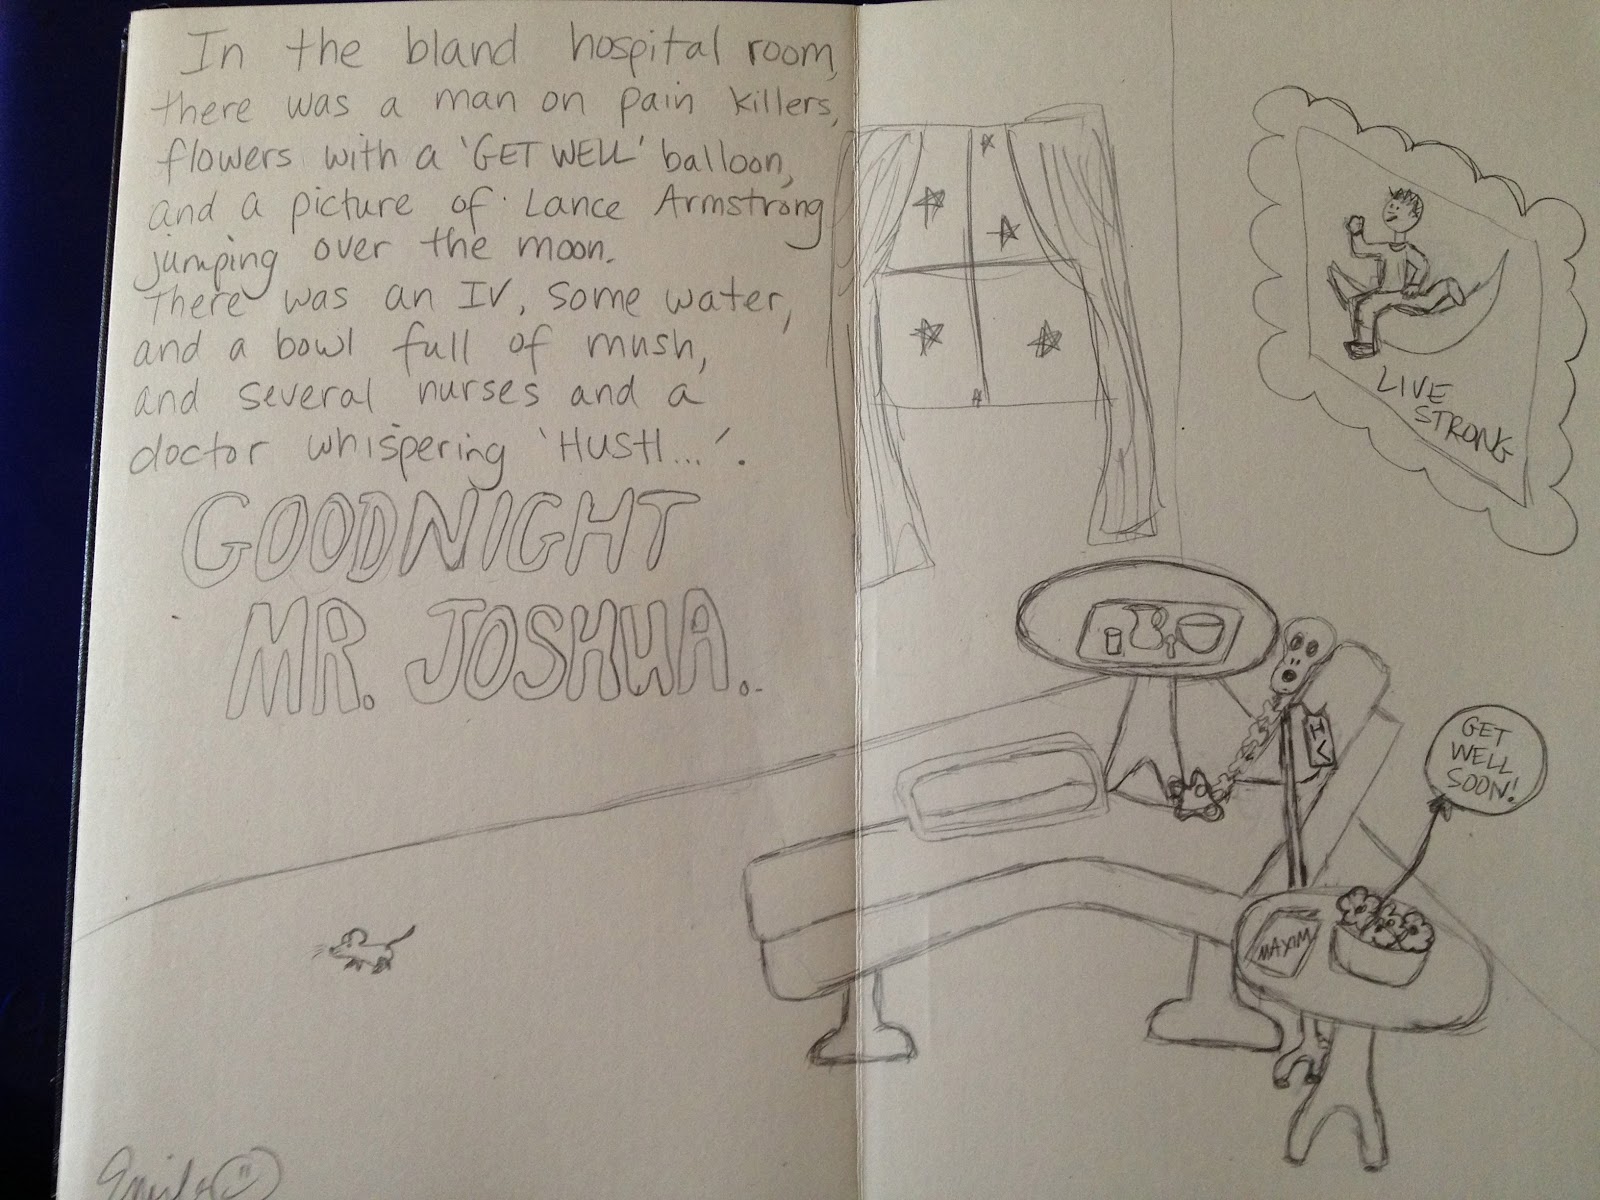 In the bland hospital room,
there was a man on pain killers,
flowers with a 'GET WELL' balloon,
and a picture of Lance Armstrong
jumping over the moon.
There was an IV, some water,
and a bowl full of mush,
and several nurses and a
doctor whispering 'HUSH...'.
GOODNIGHT
MR. JOSHUA.
LIVE
STRONG
GET
WELL
SOON!
MAXIM